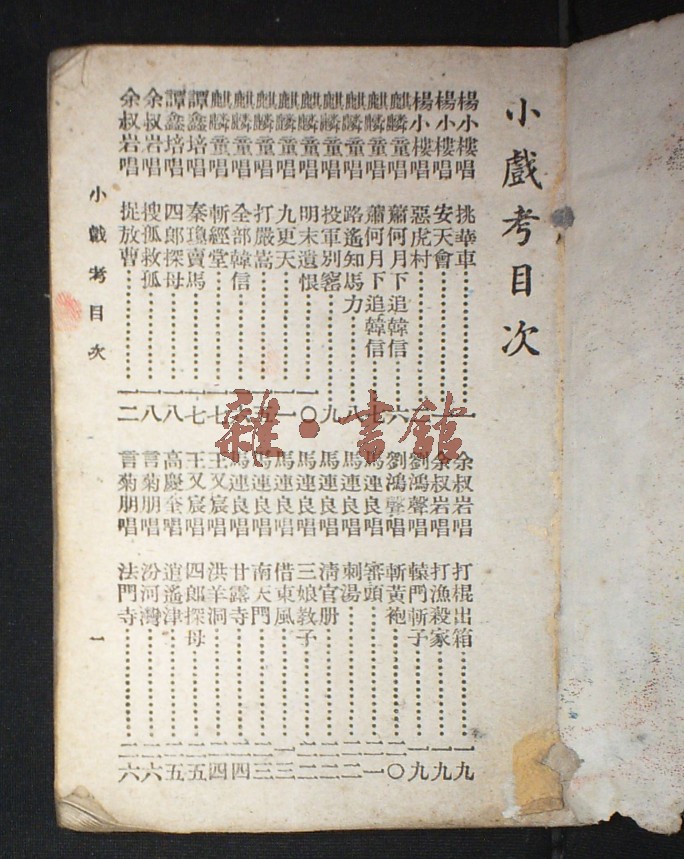 小戲考目次
楊小樓唱 挑華車 一
楊小樓唱 安天會
楊小樓唱 惡虎村
麒麟童唱 蕭何月下追韓信 六
麒麟童唱 蕭何月下追韓信 七
麒麟童唱 路遙知馬力 八
麒麟童唱 投軍別窰 九
麒麟童唱 明末遺恨 一〇
麒麟童唱 九更天 一一
麒麟童唱 打嚴嵩 一五
麒麟童唱 全部韓信
麒麟童唱 斬經堂 一七
譚鑫培唱 秦瓊賣馬 一七
譚鑫培唱 四郎探母 一八
余叔岩唱 搜孤救孤 一八
余叔岩唱 捉放曹 一二
余叔岩唱 打棍出箱 一九
余叔岩唱 打漁殺家 一九
劉鴻聲唱 轅門斬子 一九
劉鴻聲唱 斬黃袍 二〇
馬連良唱 審頭 二一
馬連良唱 刺湯 二二
馬連良唱 清官册 二二
馬連良唱 三娘教子 二二
馬連良唱 借東風 二三
馬連良唱 南天門 二三
馬連良唱 甘露寺 二四
王又宸唱 洪羊洞 二四
王又宸唱 四郎探母 二五
高慶奎唱 逍遙津 二五
言菊朋唱 汾河灣 二六
言菊朋唱 法門寺 二六
小戲考目次 一
雜·書館